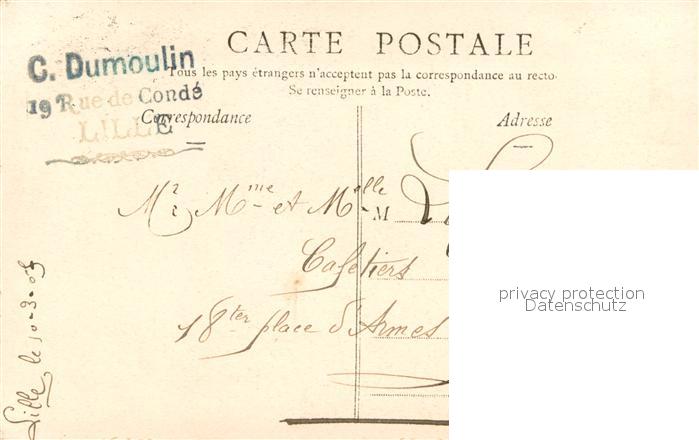 CARTE POSTALE
C. Dumoulin
19 Rue de Condé
LILLE
Tous les pays étrangers n'acceptent pas la correspondance au recto.
Se renseigner à la Poste.
Correspondance
Adresse
Mr, Mme et Melle M
Cafetiers
18 ter place d'Armes
Lille, le 10-3-05
privacy protection
Datenschutz